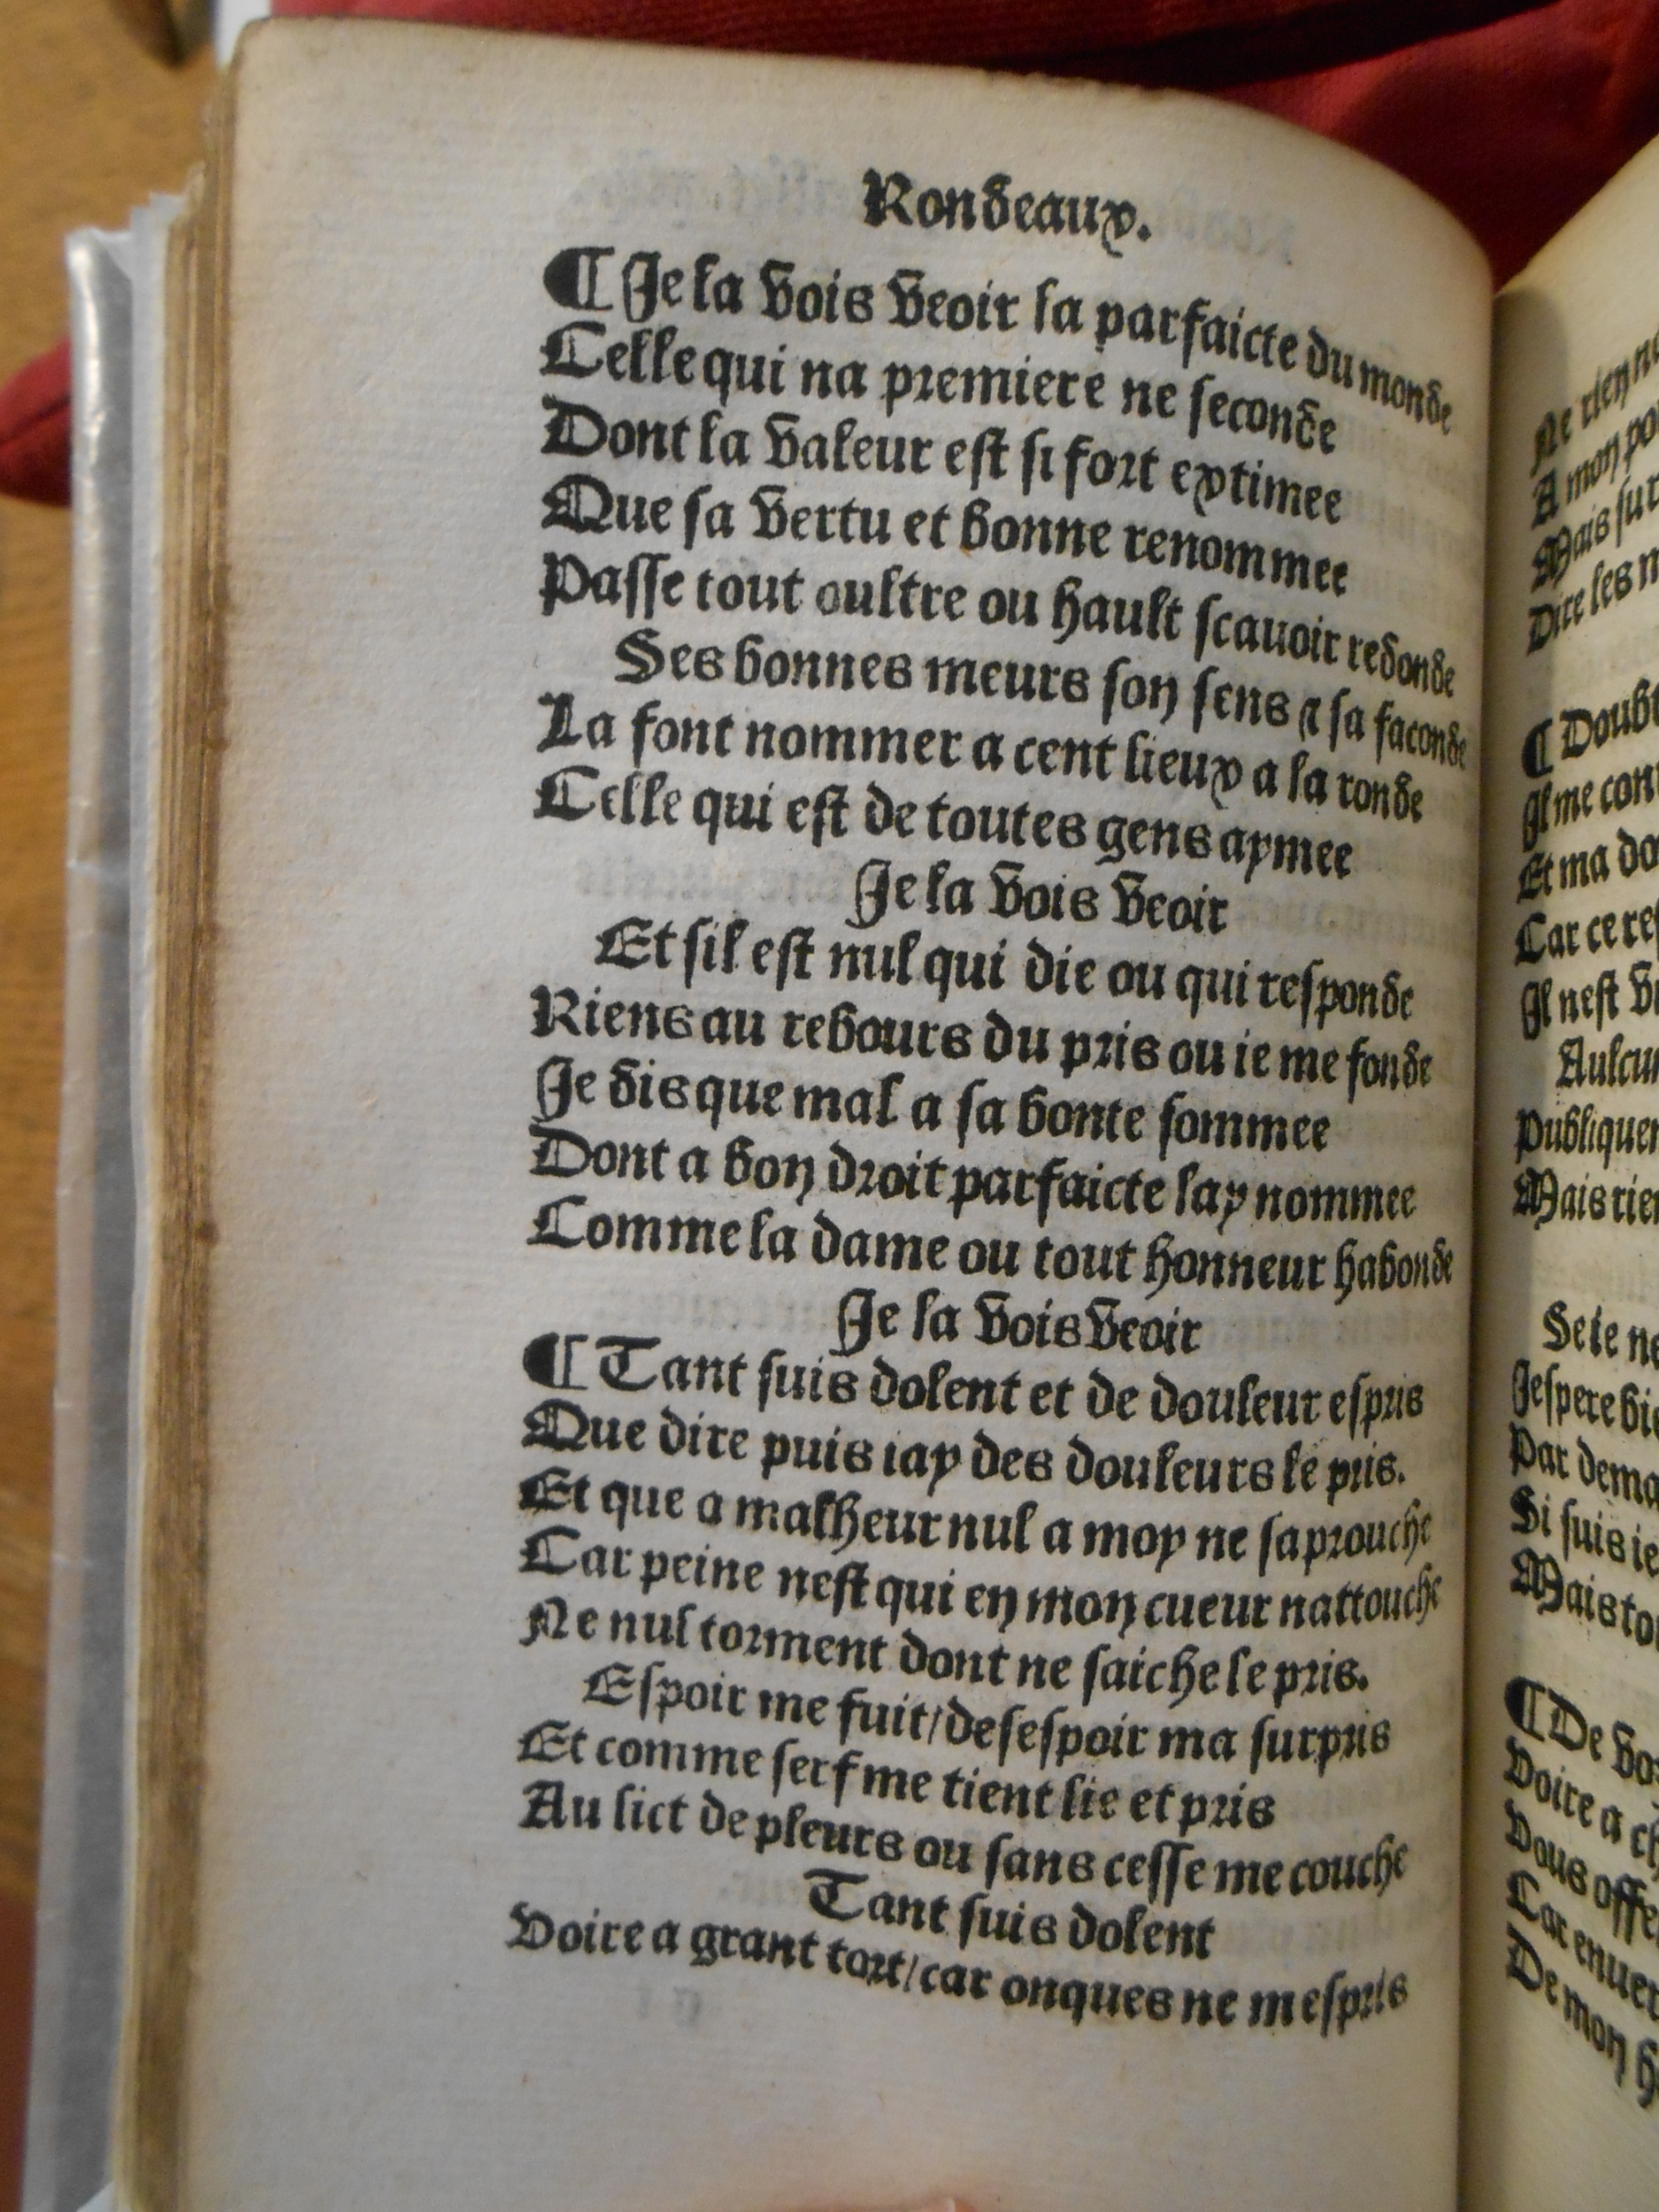 Rondeaux.
¶ Je la vois veoir la parfaicte du monde
Celle qui na premiere ne seconde
Dont la valeur est si fort extimee
Que sa vertu et bonne renommee
Passe tout oultre ou hault scauoir redonde
Ses bonnes meurs son sens ⁊ sa faconde
La font nommer a cent lieux a la ronde
Celle qui est de toutes gens aymee
Je la vois veoir
Et sil est nul qui die ou qui responde
Riens au rebours du pris ou ie me fonde
Je dis que mal a sa bonte sommee
Dont a bon droit parfaicte lay nommee
Comme la dame ou tout honneur habonde
Je la vois veoir
¶ Tant suis dolent et de douleur espris
Que dire puis iay des douleurs le pris.
Et que a malheur nul a moy ne saprouche
Car peine nest qui en mon cueur nattouche
Ne nul torment dont ne saiche le pris.
Espoir me fuit/desespoir ma surpris
Et comme serf me tient lie et pris
Au lict de pleurs ou sans cesse me couche
Tant suis dolent
Voire a grant tort/car onques ne mespris
Ne rien
A mon
Mais sur
Dire les
¶
Il me
Et ma
Car ce
Il nest
Mais
Se ie
Jespere
Par
Si suis ie
Mais
¶ De
Voire a
Vous
Car
De mon